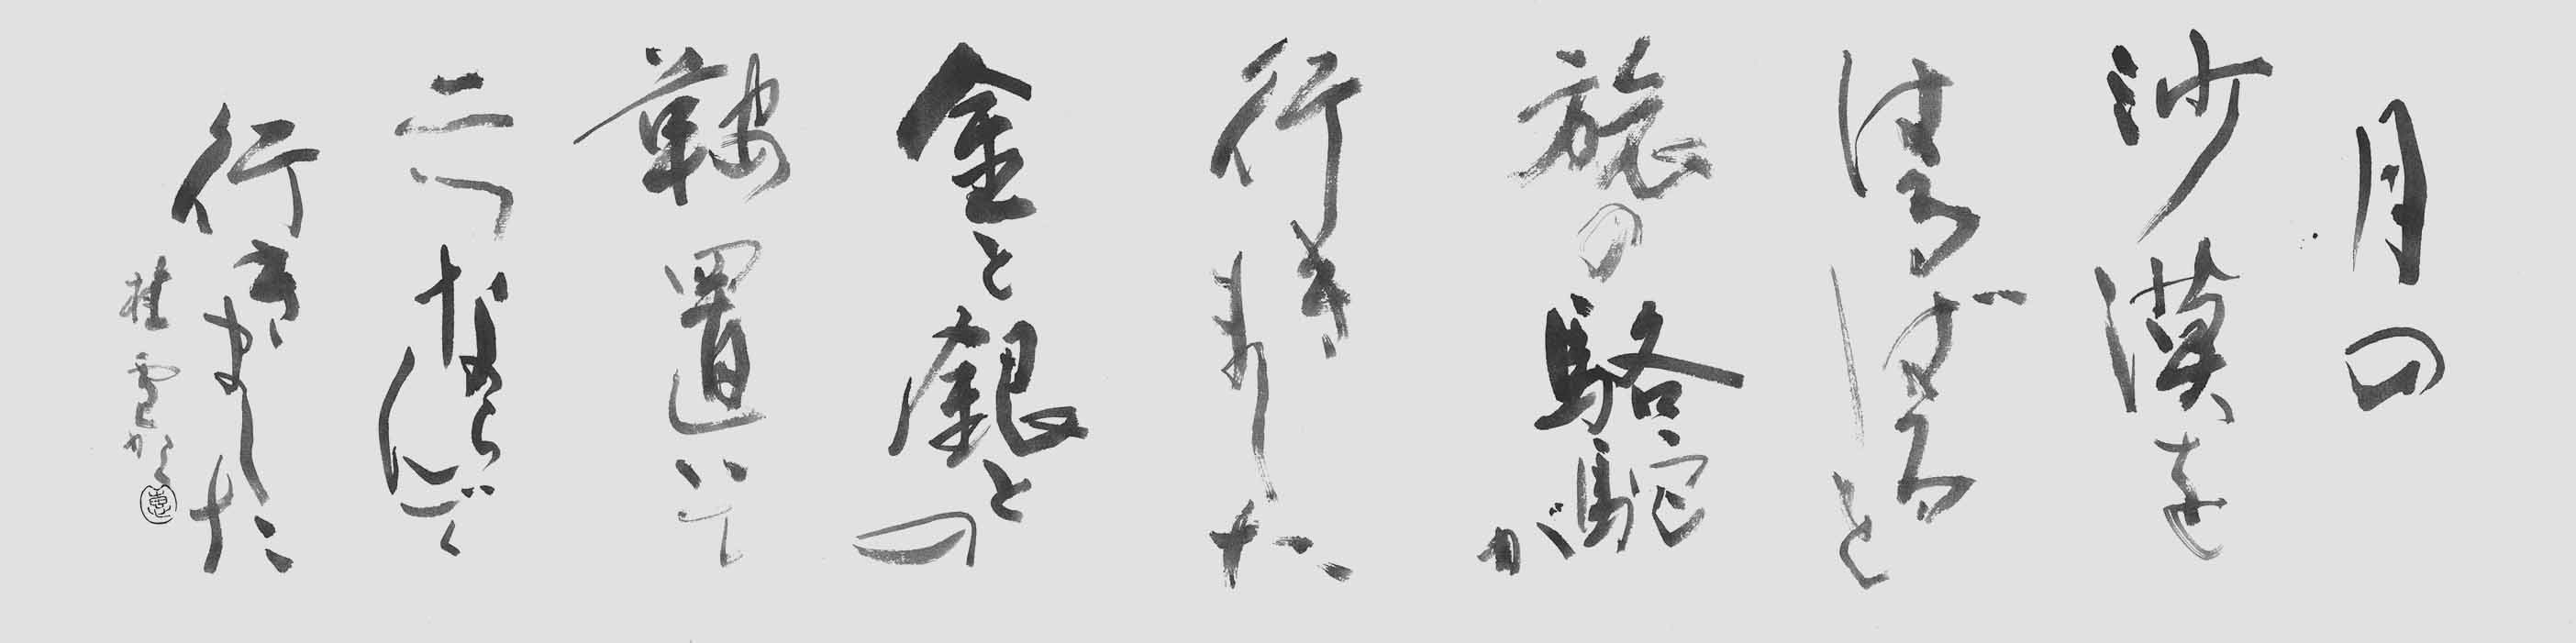 月の
沙漠を
はるばると
旅の駱駝が
行きました
金と銀との
鞍置いて
二つならんで
行きました
桂